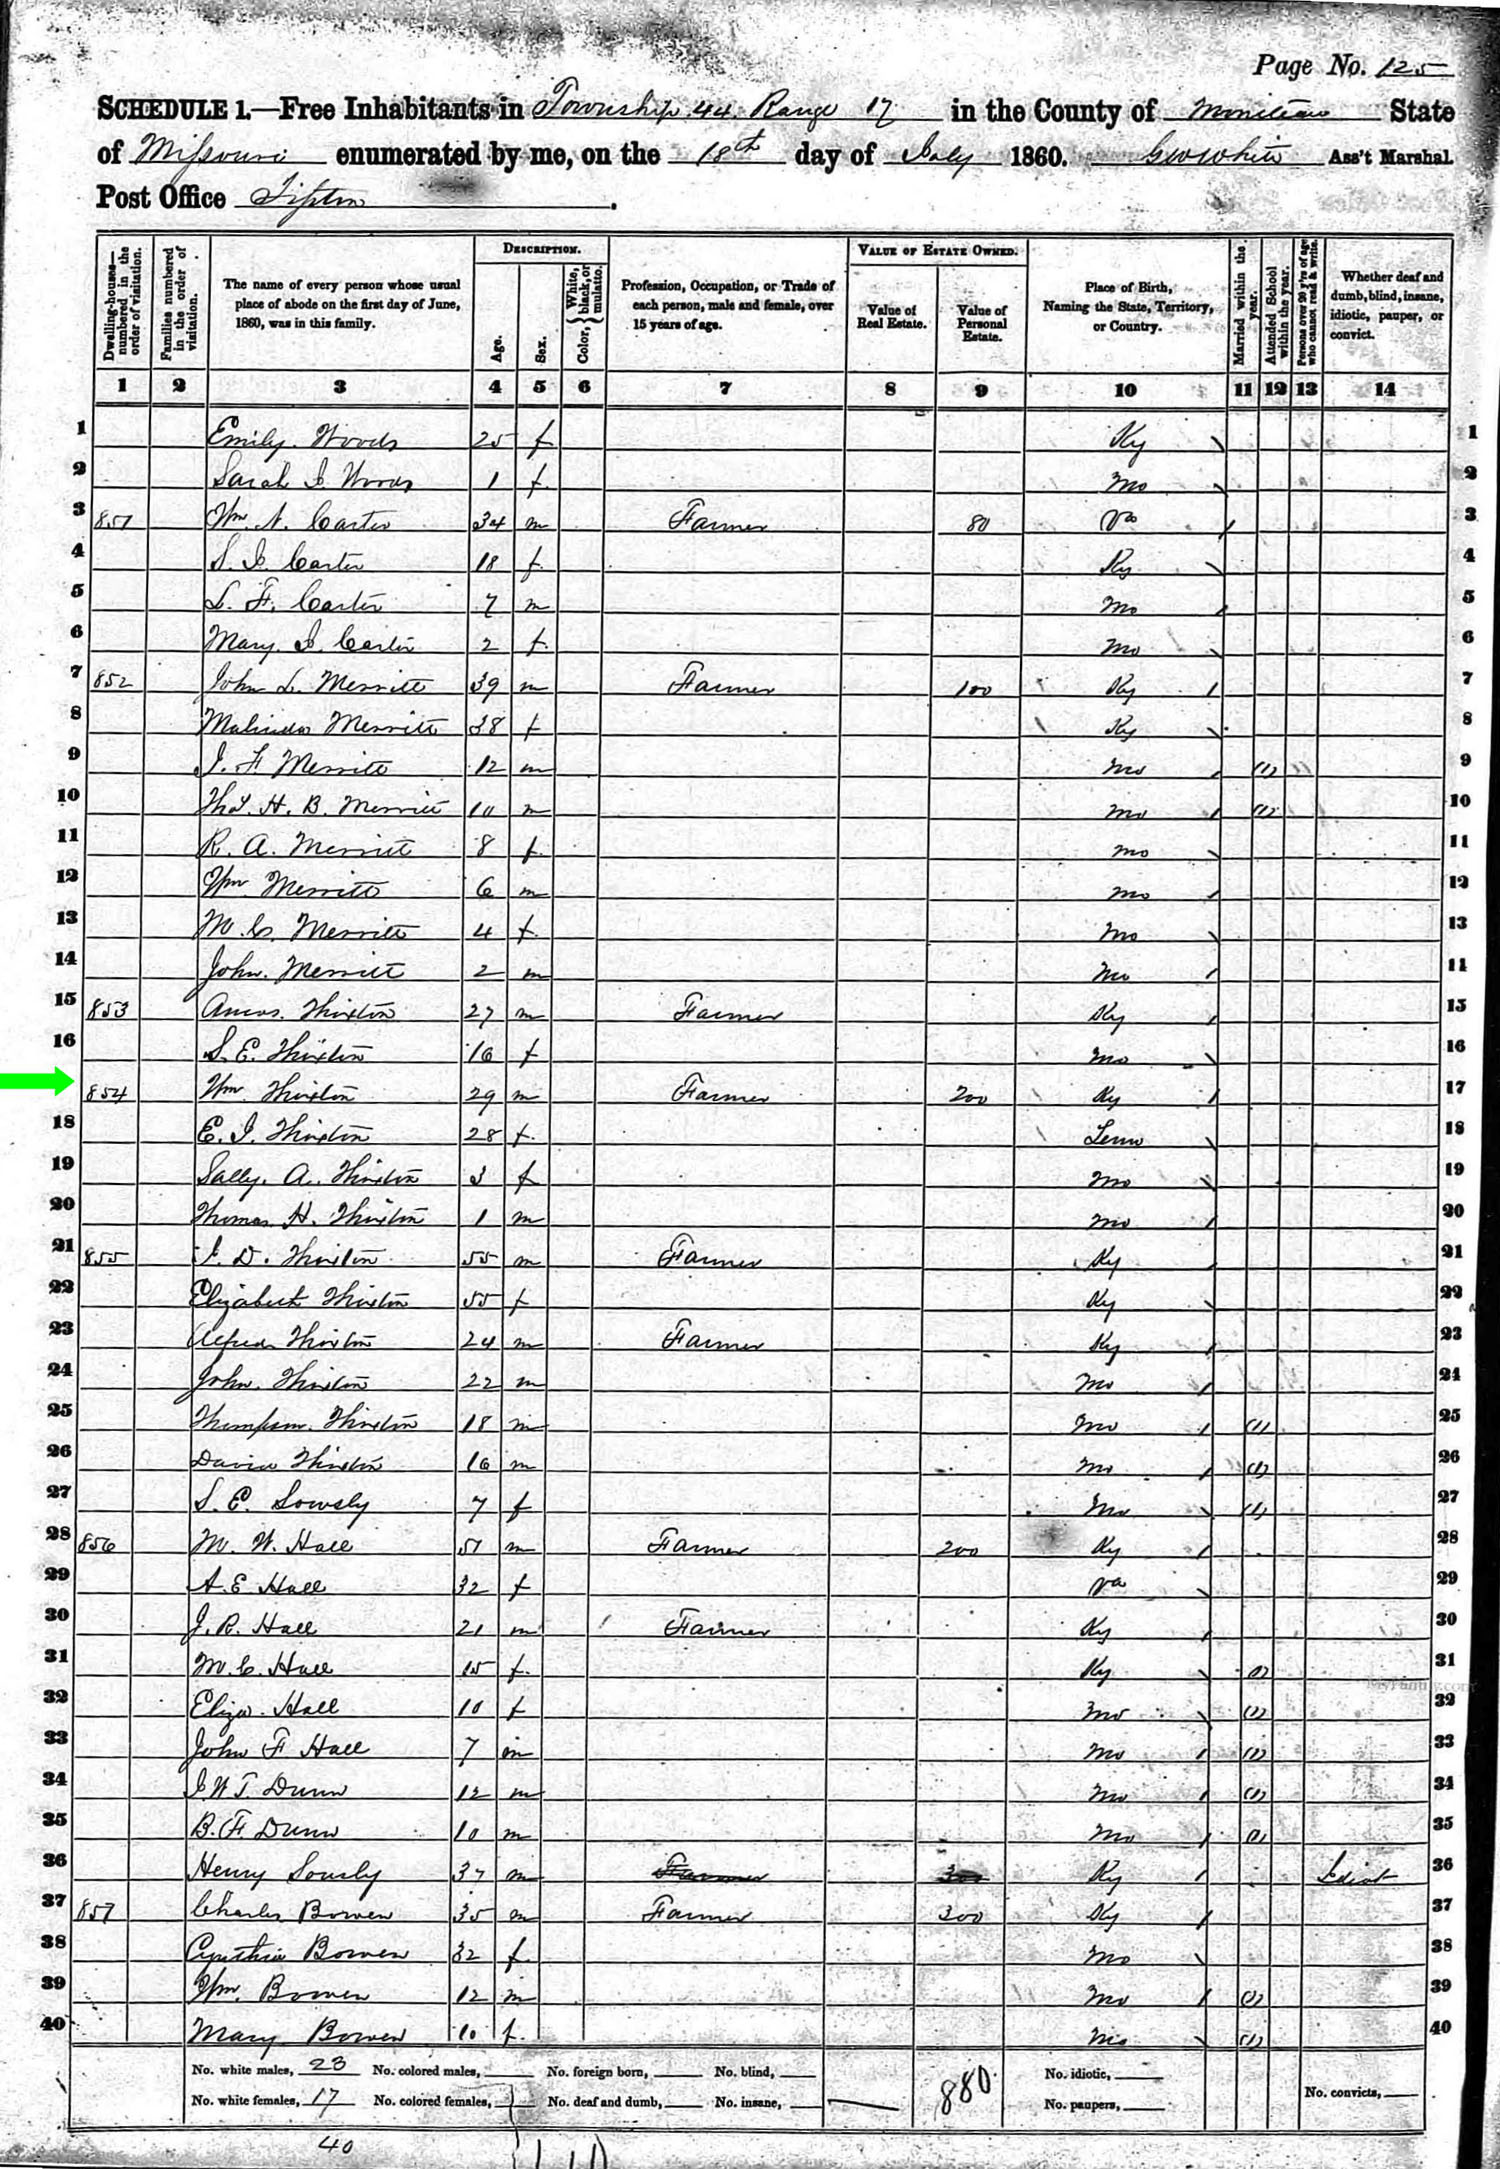 Page No. 125
SCHEDULE 1.—Free Inhabitants in Township 44 Range 17 in the County of Moniteau State
of Missouri enumerated by me, on the 18th day of July 1860. G W White Ass't Marshal.
Post Office Tipton.
Dwelling-houses—numbered in the order of visitation. Families numbered in the order of visitation. The name of every person whose usual place of abode on the first day of June, 1860, was in this family. DESCRIPTION. Age. Sex. Color, {White, black, or mulatto. Profession, Occupation, or Trade of each person, male and female, over 15 years of age. VALUE OF ESTATE OWNED. Value of Real Estate. Value of Personal Estate. Place of Birth, Naming the State, Territory, or Country. Married within the year. Attended School within the year. Persons over 20 y'rs of age who cannot read & write. Whether deaf and dumb, blind, insane, idiotic, pauper, or convict.
1 2 3 4 5 6 7 8 9 10 11 12 13 14
1 Emily Woods 25 f Ky 1
2 Sarah J Woods 1 f Mo 2
3 851 Wm N. Carter 34 m Farmer 80 Va 3
4 S. J. Carter 18 f Ky 4
5 L. F. Carter 7 m Mo 5
6 Mary J. Carter 2 f Mo 6
7 852 John L. Merritt 39 m Farmer 100 Ky 7
8 Malinda Merritt 38 f Ky 8
9 J. F Merritt 12 m Mo (1) 9
10 Thos. H. B. Merritt 10 m Mo (1) 10
11 R. A. Merritt 8 f Mo 11
12 Wm Merritt 6 m Mo 12
13 M. C. Merritt 4 f Mo 13
14 John Merritt 2 m Mo 11
15 853 Amos Thixton 27 m Farmer Ky 15
16 S. E. Thixton 16 f Mo 16
854 Wm Thixton 29 m Farmer 200 Ky 17
18 E. J. Thixton 28 f Tenn 18
19 Sally A. Thixton 3 f Mo 19
20 Thomas H. Thixton 1 m Mo 20
21 855 J. D. Thixton 55 m Farmer Ky 21
22 Elizabeth Thixton 55 f Ky 22
23 Alfred Thixton 24 m Farmer Ky 23
24 John Thixton 22 m Mo 24
25 Thompson Thixton 18 m Mo (1) 25
26 David Thixton 16 m Mo (1) 26
27 S. E. Sowsly 7 f Mo (1) 27
28 856 M. W. Hall 51 m Farmer 200 Ky 28
29 A. E Hall 32 f Va 29
30 J. R. Hall 21 m Farmer Ky 30
31 M. C. Hall 15 f Ky (1) 31
32 Eliza Hall 10 f Mo (1) 32
33 John F Hall 7 m Mo (1) 33
34 J. W T Dunn 12 m Mo (1) 34
35 B. F. Dunn 10 m Mo (1) 35
36 Henry Sowsly 37 m Farmer 300 Ky Idiot 36
37 857 Charles Bowen 35 m Farmer 300 Ky 37
38 Cynthia Bowen 32 f Mo 38
39 Wm. Bowen 12 m Mo (1) 39
40 Mary Bowen 10 f Mo (1) 40
No. white males, 23 No. colored males, No. foreign born, No. blind, 880 No. idiotic,
No. white females, 17 No. colored females, No. deaf and dumb, No. insane, No. paupers, No. convicts,
40